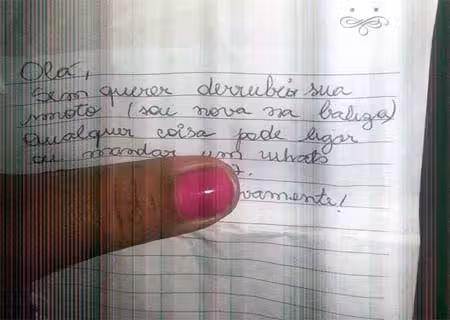 Olá,
Sem querer derrubei sua
moto (sou nova na baliza)
Qualquer coisa pode ligar
ou mandar um whats
vamente!